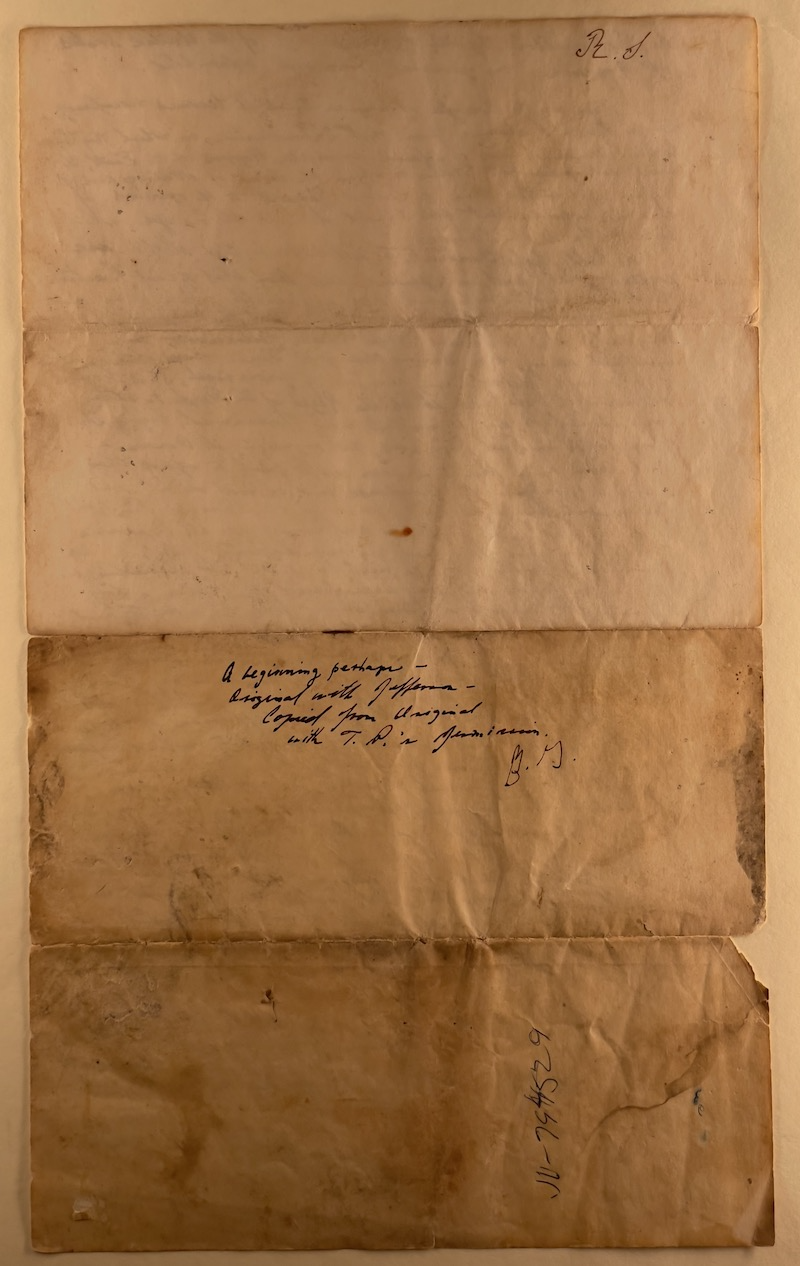 R. S.
A beginning perhaps –
Original with Jefferson –
Copied from Original
with T. P.'s permission.
JU-7945529